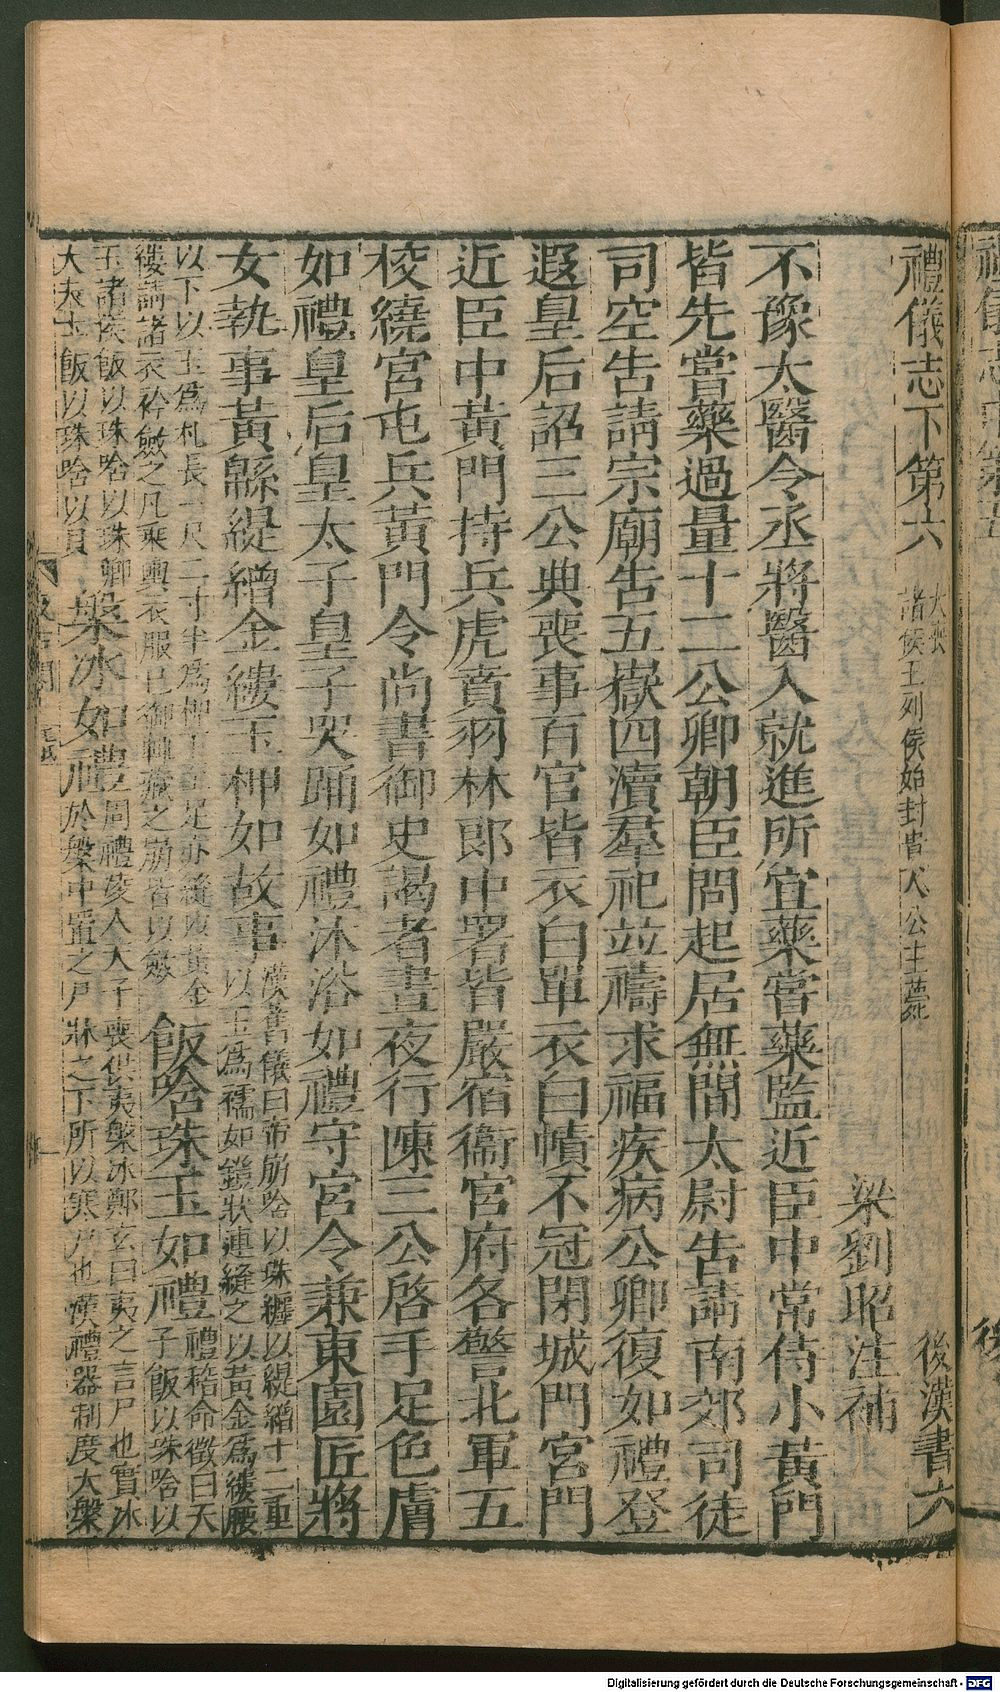 禮儀志下第六 大喪 諸侯王列侯始封貴人公主薨 後漢書六
梁劉昭注補
不豫太醫令丞將醫入就進所宜藥嘗藥監近臣中常侍小黃門
皆先嘗藥過量十二公卿朝臣問起居無間太尉告請南郊司徒
司空告請宗廟告五嶽四瀆羣祀並禱求福疾病公卿復如禮登
遐皇后詔三公典喪事百官皆衣白單衣白幘不冠閉城門宮門
近臣中黃門持兵虎賁羽林郎中署皆嚴宿衞宮府各警北軍五
校繞宮屯兵黃門令尚書御史謁者晝夜行陳三公啓手足色膚
如禮皇后皇太子皇子哭踊如禮沐浴如禮守宮令兼東園匠將
女執事黃緜緹繒金縷玉柙如故事
漢舊儀曰帝崩唅以珠纏以緹繒十二重
以玉爲襦如鎧狀連縫之以黃金爲縷腰
以下以玉爲札長一尺二寸半爲柙下至足亦縫以黃金
縷請諸衣衿斂之凡乘輿衣服已御輒藏之崩皆以斂
飯唅珠玉如禮
禮稽命徵曰天
子飯以珠唅以
玉諸侯飯以珠唅以珠卿
大夫士飯以珠唅以貝
槃冰如禮
周禮凌人天子喪供夷槃冰鄭玄曰夷之言尸也實冰
於槃中置之尸牀之下所以寒尸也漢禮器制度大槃
後
Digitalisierung gefördert durch die Deutsche Forschungsgemeinschaft - DFG